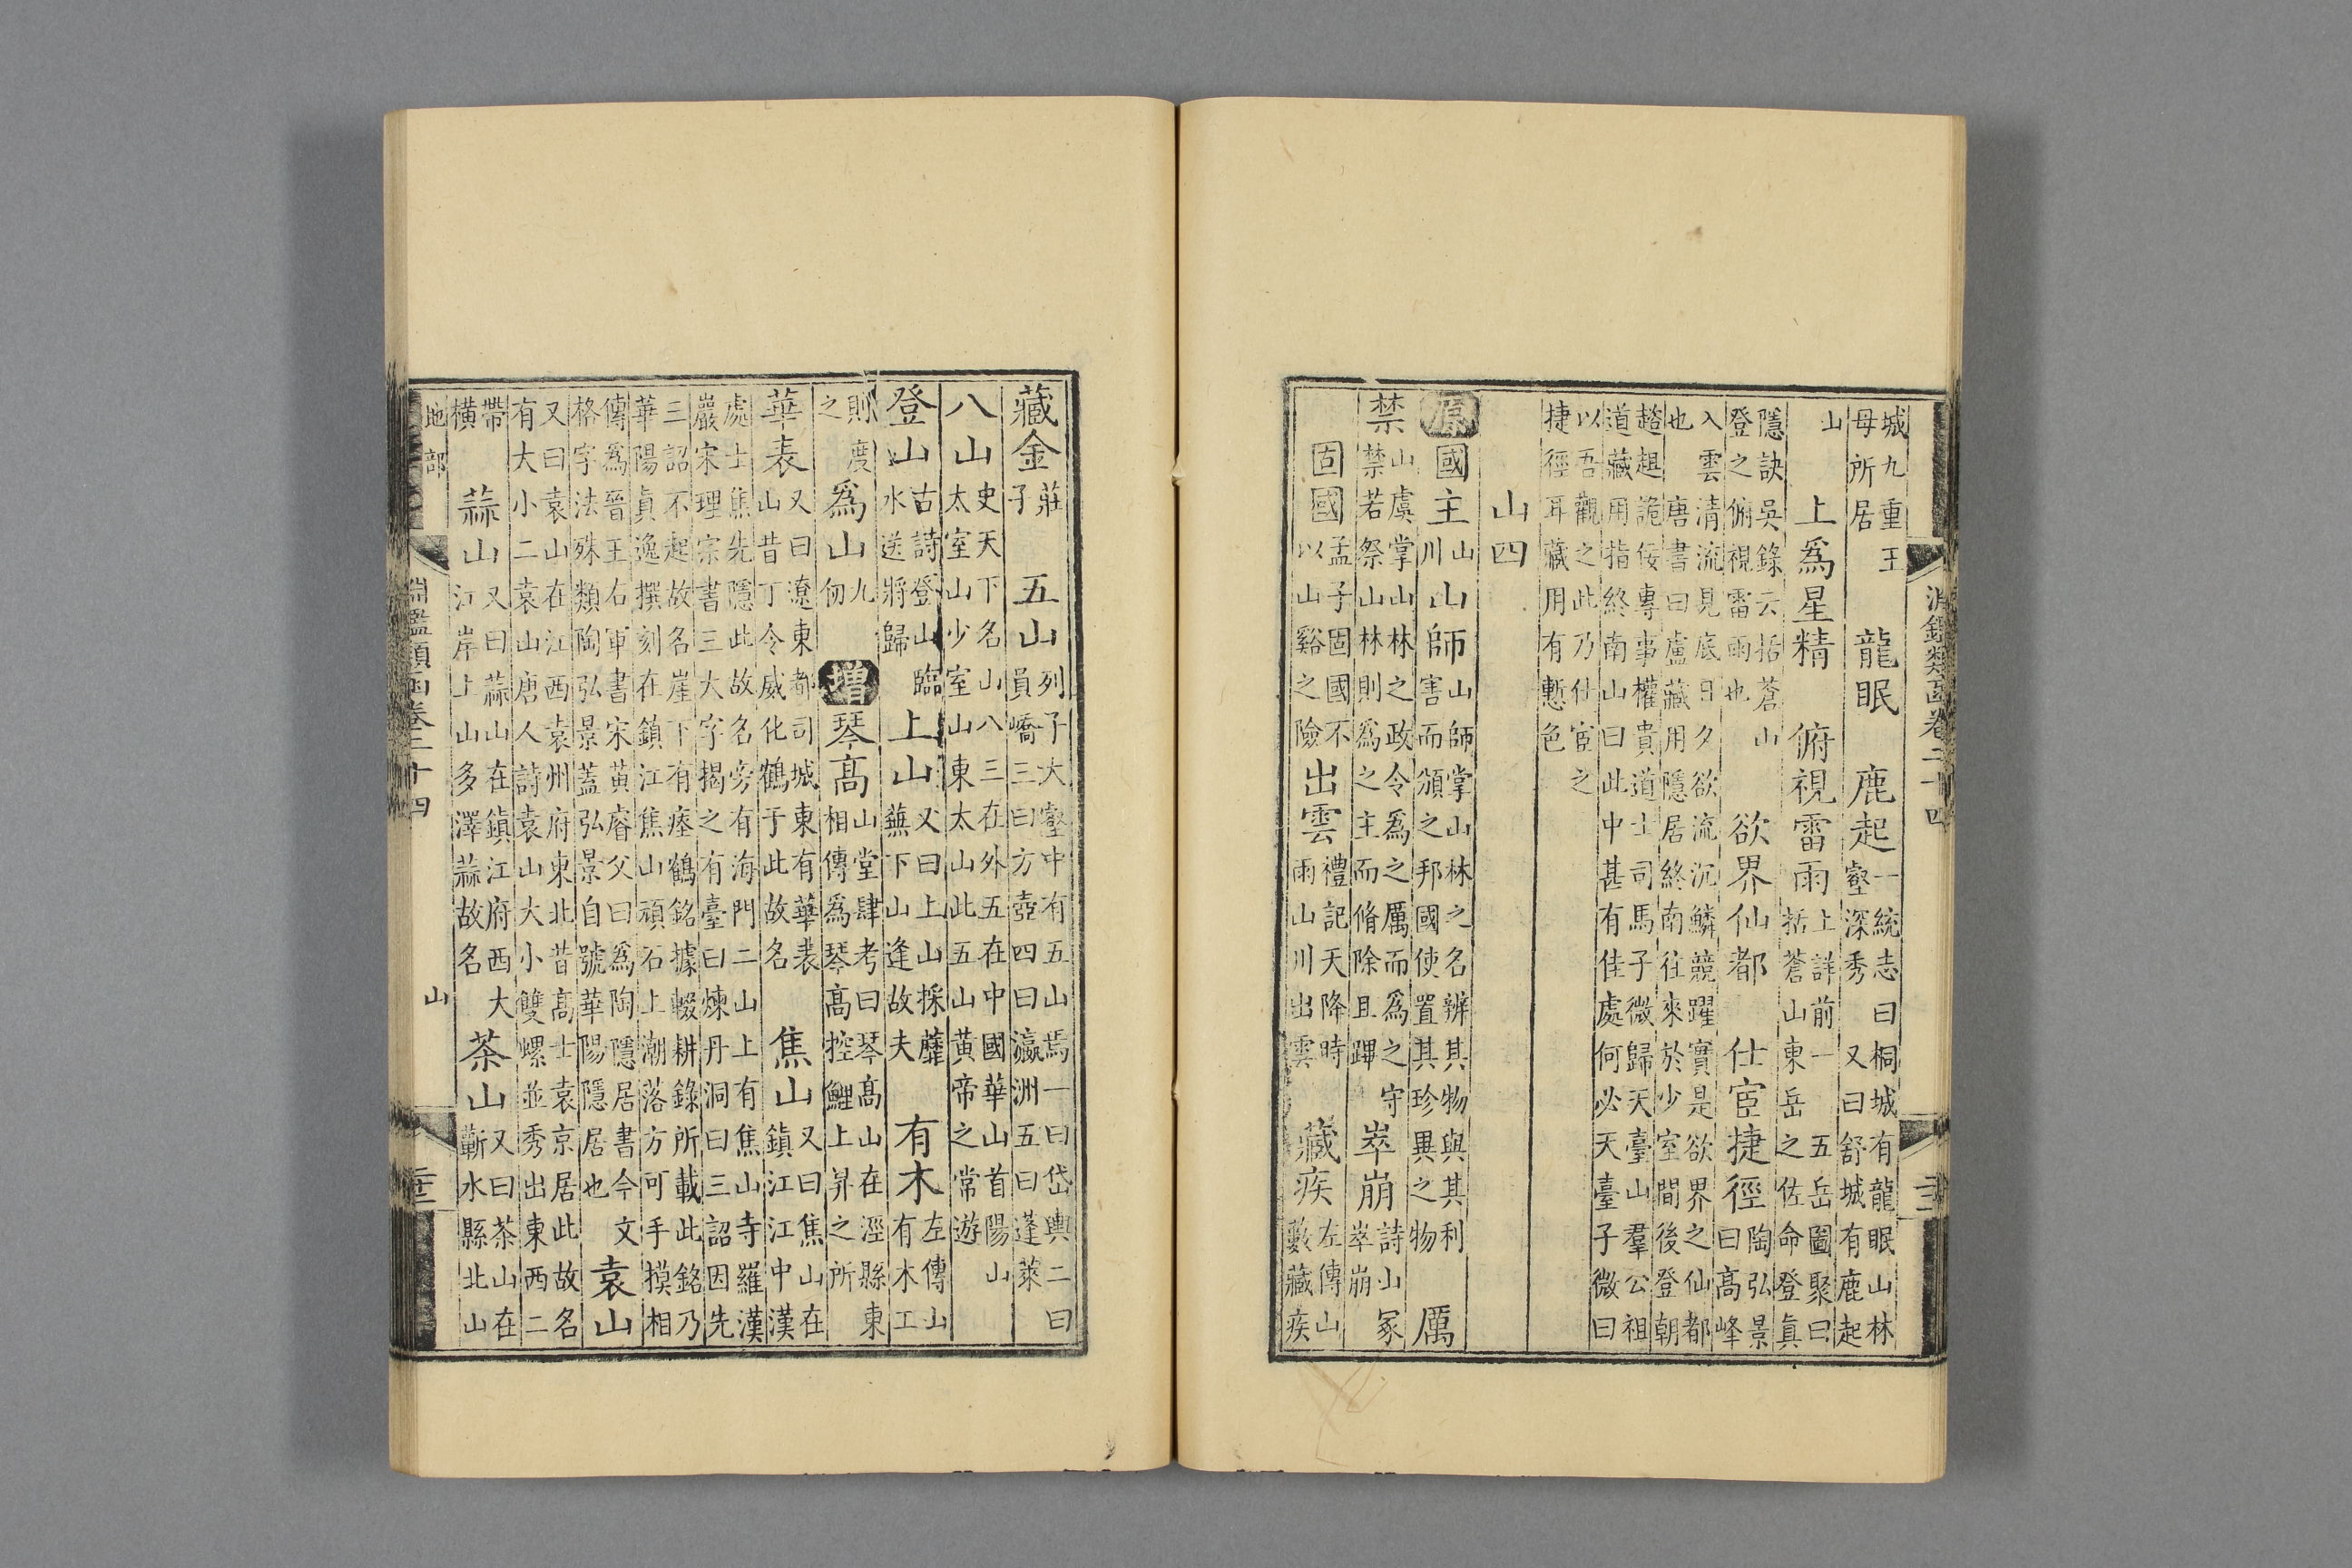 淵鑑類函卷二十四
城九重王母所居 龍眠 鹿起 一統志曰桐城有龍眠山林壑深秀又曰舒城有鹿起
山 上爲星精 俯視雷雨 上詳前一 五岳圖聚曰括蒼山東岳之佐命登真
隱訣吳錄云括蒼山登之俯視雷雨也 欲界仙都 仕宦捷徑 陶弘景曰高峰
入雲清流見底日夕欲流沉鱗競躍實是欲界之仙都也 唐書曰盧藏用隱居終南往來於少室間後登朝
趦趄詭佞專事權貴道士司馬子微歸天臺山羣公祖道藏用指終南山曰此中甚有佳處何必天臺子微曰
以吾觀之此乃仕宦之捷徑耳藏用有慙色
山四
原 國主 山川 山師 山師掌山林之名辨其物與其利害而頒之邦國使置其珍異之物 厲
禁 山虞掌山林之政令爲之厲而爲之守禁若祭山林則爲之主而脩除且蹕 崒崩 詩山冢崒崩
固國 孟子固國不以山谿之險 出雲 禮記天降時雨山川出雲 藏疾 左傳山藪藏疾
藏金 莊子 五山 列子大壑中有五山焉一曰岱輿二曰員嶠三曰方壺四曰瀛洲五曰蓬萊
八山 史天下名山八三在外五在中國華山首陽山太室山少室山東太山此五山黃帝之常遊
登山 古詩登山臨水送將歸 上山 又曰上山採蘼蕪下山逢故夫 有木 左傳山有木工
則度之 爲山 九仞 增 琴高 山堂肆考曰琴高山在涇縣東相傳爲琴高控鯉上昇之所
華表 又曰遼東都司城東有華表山昔丁令威化鶴于此故名 焦山 又曰焦山在鎮江江中漢
處士焦先隱此故名旁有海門二山上有焦山寺羅漢巖宋理宗書三大字揭之有臺曰煉丹洞曰三詔因先
三詔不起故名崖下有瘞鶴銘據輟耕錄所載此銘乃華陽真逸撰刻在鎮江焦山頑石上潮落方可手摸相
傳爲晉王右軍書宋黃睿父曰爲陶隱居書今文格字法殊類陶弘景蓋弘景自號華陽隱居也 袁山
又曰袁山在江西袁州府東北昔高士袁京居此故名有大小二袁山唐人詩袁山大小雙螺並秀出東西二
帶橫 蒜山 又曰蒜山在鎮江府西大江岸上山多澤蒜故名 茶山 又曰茶山在蘄水縣北山
地部 山
淵鑑類函卷二十四